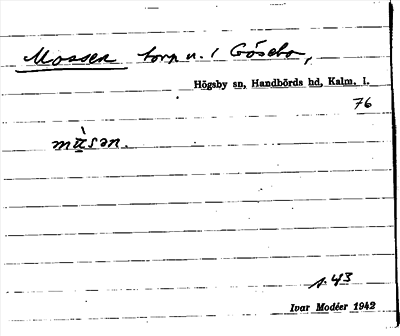 Mossen torp u. / Gösebo,
Högsby sn, Handbörds hd, Kalm. l.
76
mùsən.
s. 43
Ivar Modéer 1942